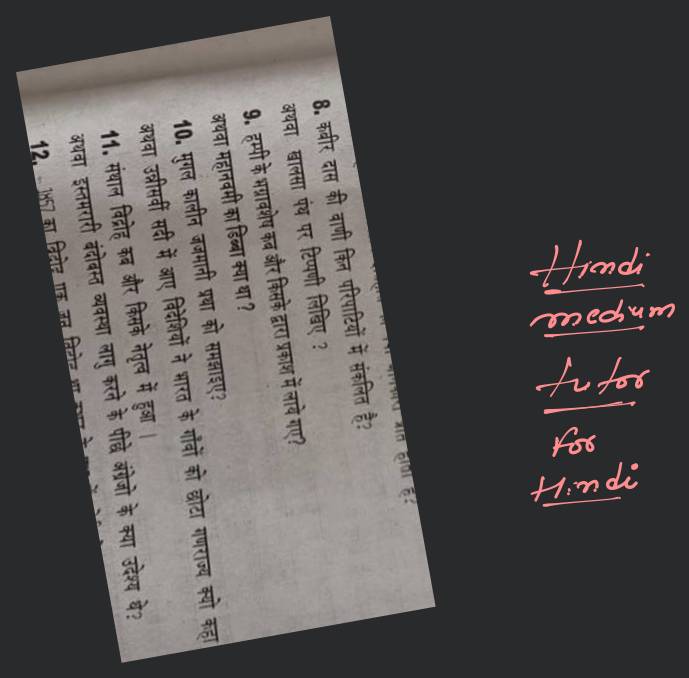 8. कबीर दास की वाणी किन परिपाटियों में संकलित है?
अथवा खालसा पंथ पर टिप्पणी लिखिए ?
9. हम्पी के भग्नावशेष कब और किसके द्वारा प्रकाश में लाये गए?
अथवा महानवमी का डिब्बा क्या था?
10. मुगल कालीन जजमानी प्रथा को समझाइए?
अथवा उन्नीसवीं सदी में आए विदेशियों ने भारत के गाँवों को छोटा गणराज्य क्यो कहा
11. संथाल विद्रोह कब और किसके नेतृत्व में हुआ |
अथवा इस्तमरारी बंदोबस्त व्यवस्था लागु करने के पीछे अंग्रेजो के क्या उदेश्य थे?
12. 1857 का विद्रोह एक जन विद्रोह था
Hindi
medium
tutor
for
Hindi